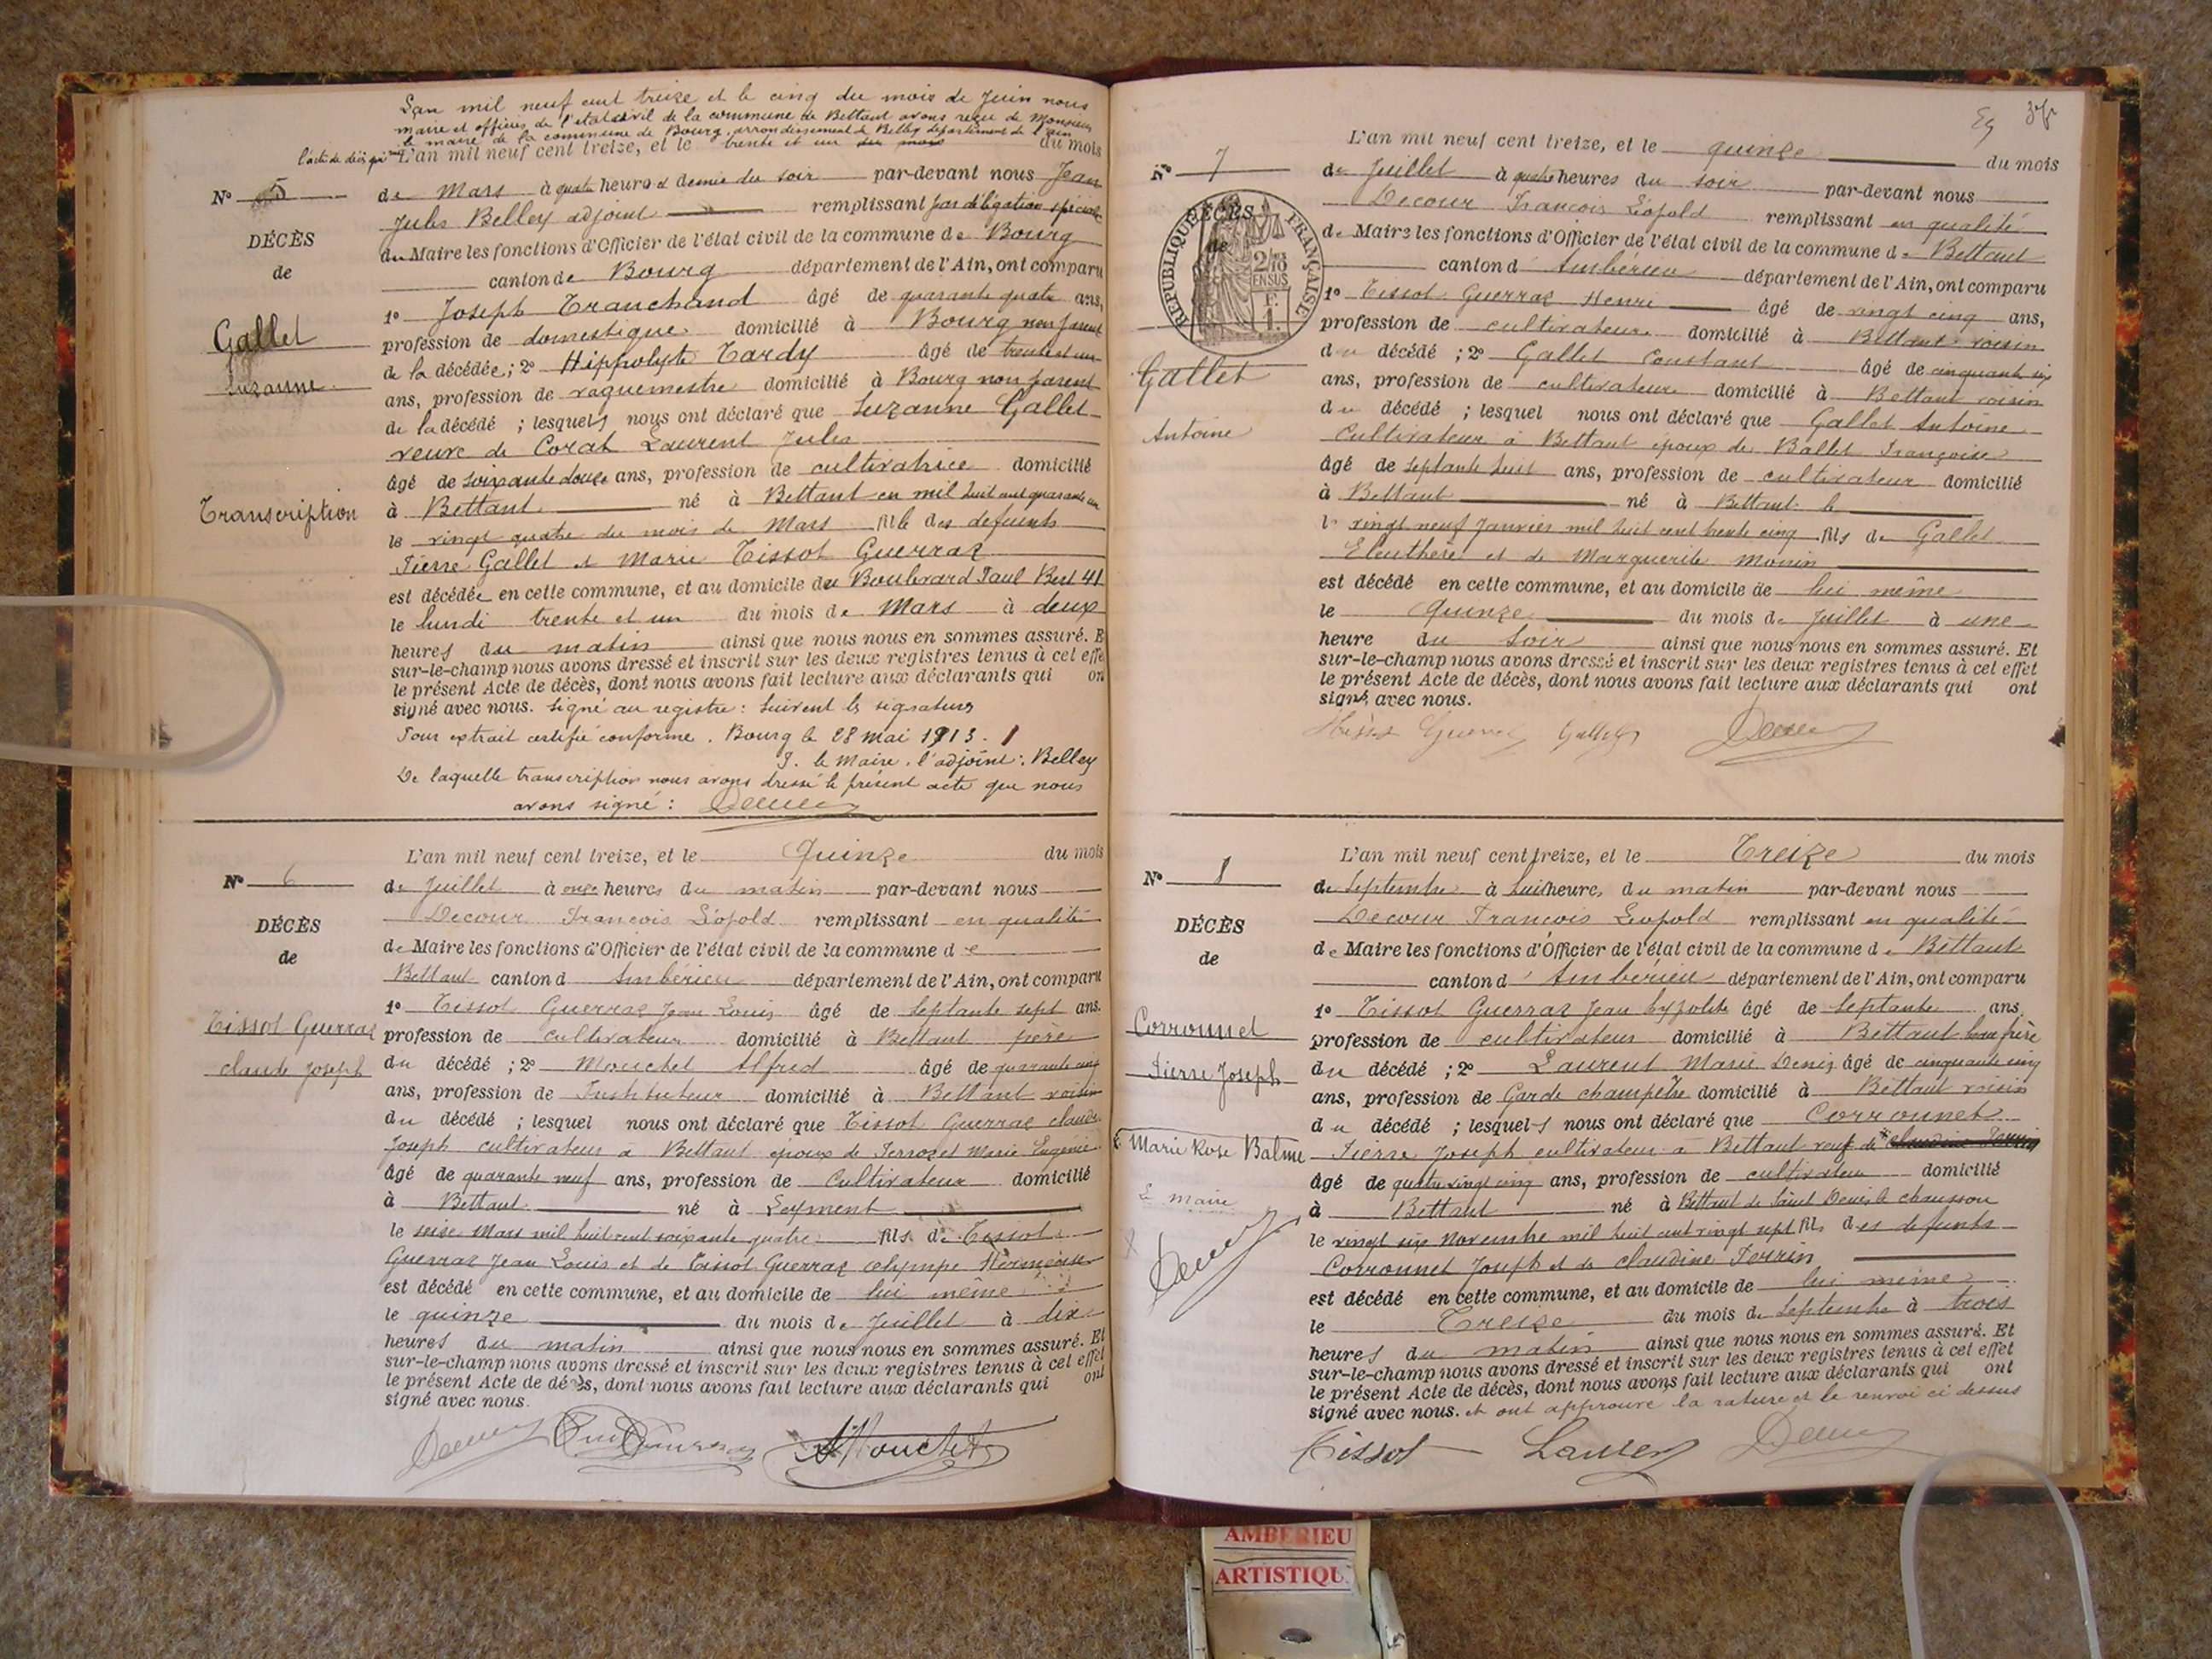 L'an mil neuf cent treize et le cinq du mois de Juin nous
maire et officier de l'état civil de la commune de Bettant avons reçu de Monsieur
le maire de la commune de Bourg, arrondissement de Belley département de l'Ain
l'acte de décès qui
L'an mil neuf cent treize, et le trente et un du mois
du mois
Nº 5
DÉCÈS
de
Gallet
Suzanne
Transcription
de Mars à quatre heures et demie du soir par-devant nous Jean
Jules Belley adjoint remplissant par délégation spéciale
du Maire les fonctions d'Officier de l'état civil de la commune de Bourg
canton de Bourg département de l'Ain, ont comparu
1º Joseph Tranchand âgé de quarante quatre ans,
profession de domestique domicilié à Bourg non parent
de la décédée; 2º Hippolyte Tardy âgé de trente et un
ans, profession de vaguemestre domicilié à Bourg non parent
de la décédé ; lesquels nous ont déclaré que Suzanne Gallet
veuve de Corat Laurent Jules
âgé de soixante douze ans, profession de cultivatrice domicilié
à Bettant né à Bettant en mil huit cent quarante un
le vingt quatre du mois de Mars fille des défunts
Pierre Gallet et Marie Tissot Guerraz
est décédée en cette commune, et au domicile du Boulevard Paul Bert 41
le lundi trente et un du mois de Mars à deux
heures du matin ainsi que nous nous en sommes assuré. E
sur-le-champ nous avons dressé et inscrit sur les deux registres tenus à cet effe
le présent Acte de décès, dont nous avons fait lecture aux déclarants qui on
signé avec nous. Signé au registre: Suivent les signatures
Pour extrait certifié conforme. Bourg le 28 mai 1913.
P. le Maire, l'adjoint: Belley
De laquelle transcription nous avons dressé le présent acte que nous
avons signé: Decour
Nº 6
DÉCÈS
de
Tissot Guerraz
Claude Joseph
L'an mil neuf cent treize, et le Quinze du mois
de Juillet à onze heures du matin par-devant nous
Decour François Léopold remplissant en qualité
de Maire les fonctions d'Officier de l'état civil de la commune de
Bettant canton d Ambérieu département de l'Ain, ont comparu
1º Tissot Guerraz Jean Louis âgé de septante sept ans.
profession de cultivateur domicilié à Bettant père
du décédé ; 2º Mouchet Alfred âgé de quarante cinq
ans, profession de Instituteur domicilié à Bettant voisin
du décédé ; lesquel nous ont déclaré que Tissot Guerraz Claude
Joseph cultivateur à Bettant époux de Ferrozet Marie Eugénie
âgé de quarante neuf ans, profession de Cultivateur domicilié
à Bettant né à Leyment
le seise Mars mil huit cent soixante quatre fils de Tissot
Guerraz Jean Louis et de Tissot Guerraz Olympe
est décédé en cette commune, et au domicile de lui même
le quinze du mois de Juillet à dix
heures du matin ainsi que nous nous en sommes assuré. Et
sur-le-champ nous avons dressé et inscrit sur les deux registres tenus à cet effet
le présent Acte de décès, dont nous avons fait lecture aux déclarants qui ont
signé avec nous.
Decour AMouchet
37
Nº 7
DÉCÈS
de
RÉPUBLIQUE FRANÇAISE
2/10
EN SUS
F.
1.
Gallet
Antoine
L'an mil neuf cent treize, et le quinze du mois
de Juillet à quatre heures du soir par-devant nous
Decour François Léopold remplissant en qualité
de Maire les fonctions d'Officier de l'état civil de la commune de Bettant
canton d' Ambérieu département de l'Ain, ont comparu
1º Tissot Guerraz Henri âgé de vingt cinq ans,
profession de cultivateur domicilié à Bettant voisin
du décédé ; 2º Gallet Constant âgé de cinquante six
ans, profession de cultivateur domicilié à Bettant voisin
du décédé ; lesquel nous ont déclaré que Gallet Antoine
Cultivateur à Bettant époux de Ballet Françoise
âgé de septante huit ans, profession de cultivateur domicilié
à Bettant né à Bettant le
le vingt neuf Janvier mil huit cent trente cinq fils de Gallet
Eleuthère et de Marguerite Monin
est décédé en cette commune, et au domicile de lui même
le Quinze du mois de Juillet à une
heure du soir ainsi que nous nous en sommes assuré. Et
sur-le-champ nous avons dressé et inscrit sur les deux registres tenus à cet effet
le présent Acte de décès, dont nous avons fait lecture aux déclarants qui ont
signé avec nous.
Gallet Decour
Nº 8
DÉCÈS
de
Corronnet
Pierre Joseph
Marie Rose Balme
Le maire
Decour
L'an mil neuf cent treize, et le Treize du mois
de Septembre à huit heures du matin par-devant nous
Decour François Léopold remplissant en qualité
de Maire les fonctions d'Officier de l'état civil de la commune de Bettant
canton d' Ambérieu département de l'Ain, ont comparu
1º Tissot Guerraz Jean hypolite âgé de septante ans.
profession de cultivateur domicilié à Bettant beau frère
du décédé ; 2º Laurent Marie Denis âgé de cinquante cinq
ans, profession de Garde champêtre domicilié à Bettant voisin
du décédé ; lesquels nous ont déclaré que Corronnet
Pierre Joseph cultivateur à Bettant veuf de Claudine Perrin
âgé de quatre vingt cinq ans, profession de cultivateur domicilié
à Bettant né à Bettant de Saint Denis le chausson
le vingt six Novembre mil huit cent vingt sept fils des défunts
Corronnet Joseph et de Claudine Perrin
est décédé en cette commune, et au domicile de lui même
le Treize du mois de Septembre à trois
heures du matin ainsi que nous nous en sommes assuré. Et
sur-le-champ nous avons dressé et inscrit sur les deux registres tenus à cet effet
le présent Acte de décès, dont nous avons fait lecture aux déclarants qui ont
signé avec nous. et ont approuvé la rature et le renvoi ci dessus
Tissot Laurent Decour
AMBERIEU
ARTISTIQU